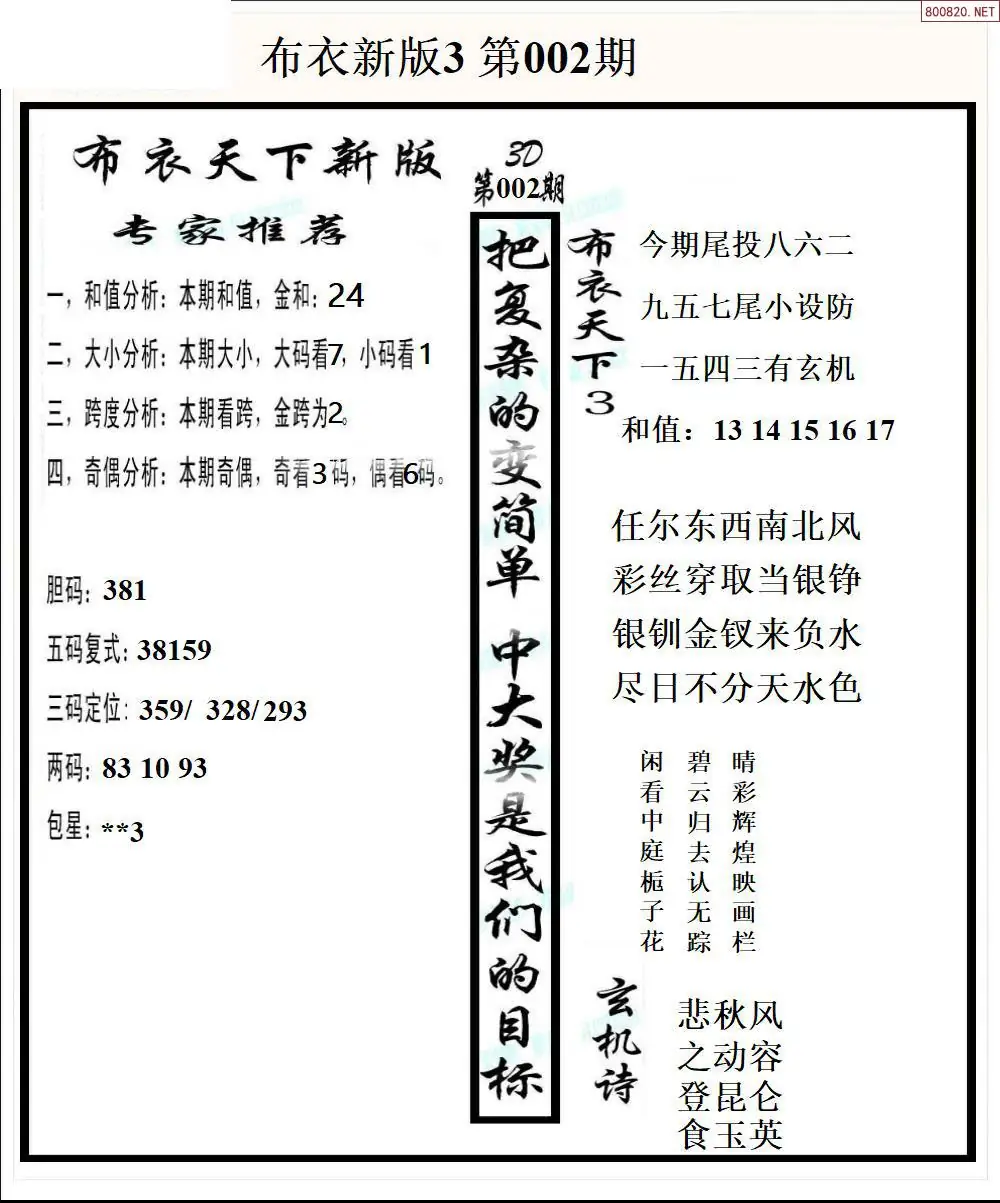 800820.NET
布衣新版3 第002期
布衣天下新版
专家推荐
一，和值分析：本期和值，金和：24
二，大小分析：本期大小，大码看7，小码看1
三，跨度分析：本期看跨，金跨为2。
四，奇偶分析：本期奇偶，奇看3码，偶看6码。
胆码：381
五码复式：38159
三码定位：359/ 328/ 293
两码：83 10 93
包星：**3
3D
第002期
把复杂的变简单 中大奖是我们的目标
布衣天下3
今期尾投八六二
九五七尾小设防
一五四三有玄机
和值：13 14 15 16 17
任尔东西南北风
彩丝穿取当银铮
银钏金钗来负水
尽日不分天水色
晴彩辉煌映画栏
碧云归去认无踪
闲看中庭栀子花
玄机诗
悲秋风
之动容
登昆仑
食玉英